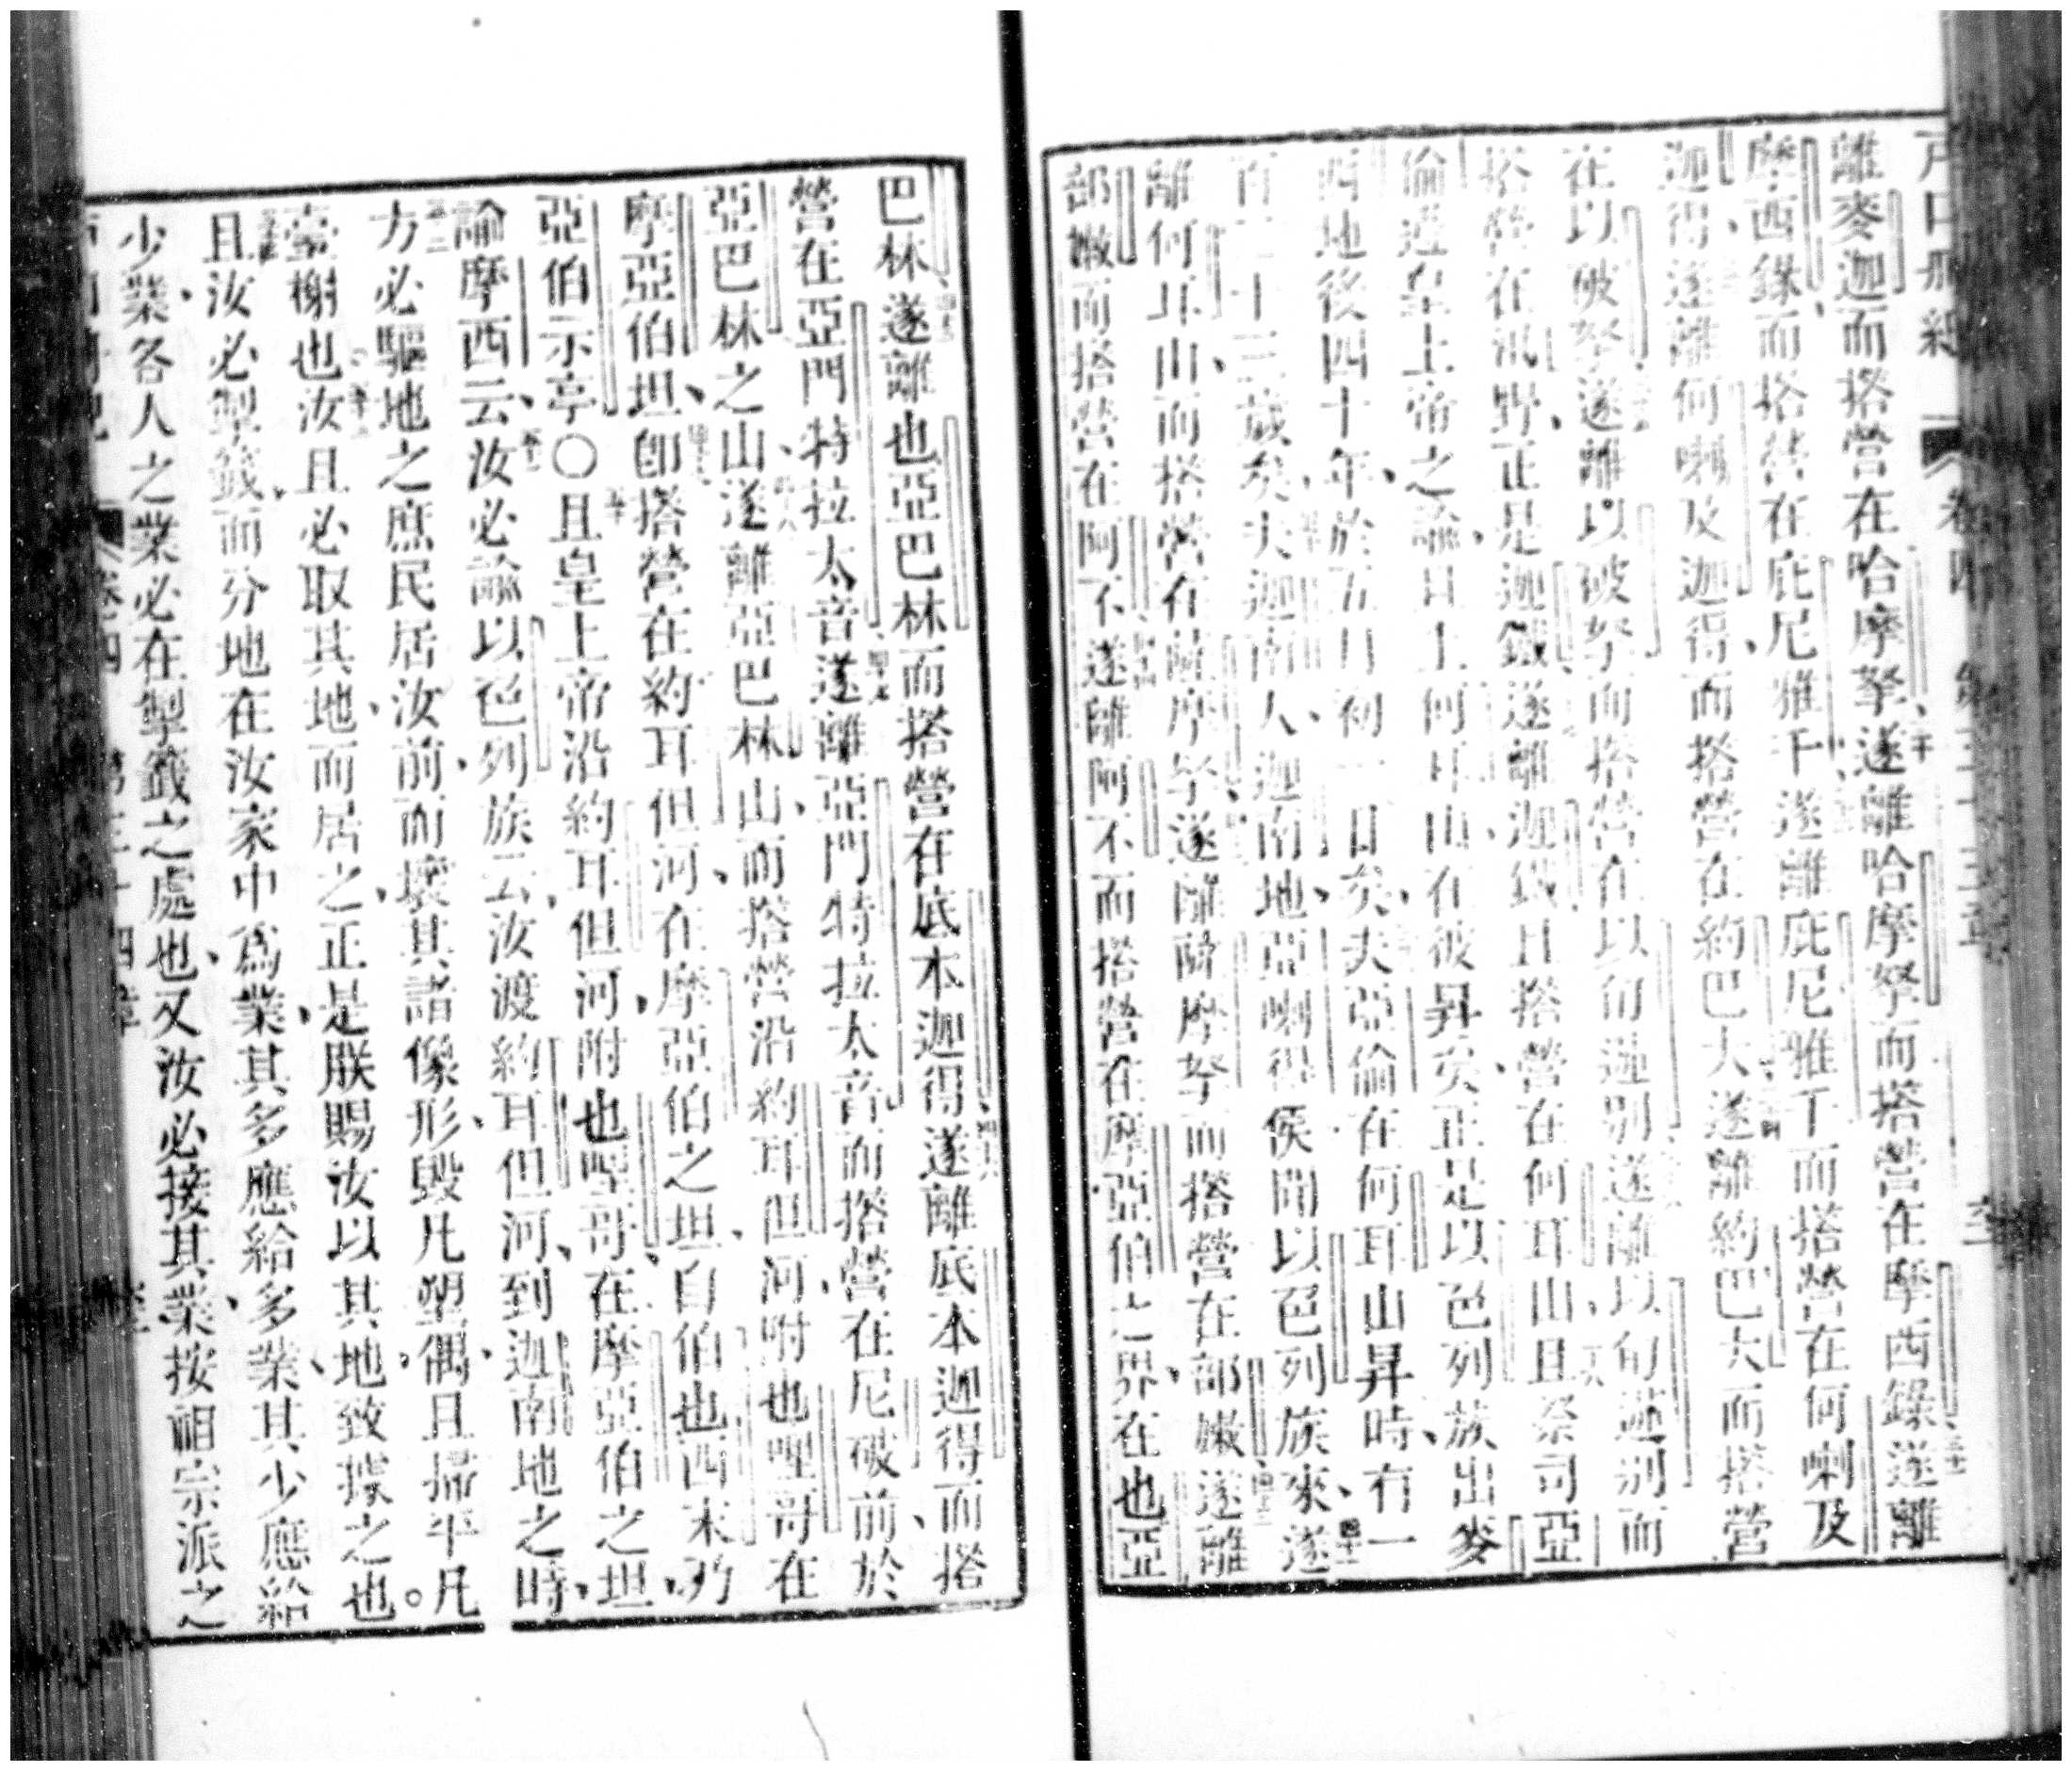 離麥迦而搭營在哈摩拏遂離哈摩拏而搭營在摩西錄遂離
摩西錄而搭營在庇尼雅干遂離庇尼雅干而搭營在何喇及
迦得遂離何喇及迦得而搭營在約巴大遂離約巴大而搭營
在以破拏遂離以破拏而搭營在以旬迦別遂離以旬迦別而
搭營在汛野正是迦鐵遂離迦鐵且搭營在何耳山且祭司亞
倫遵皇上帝之諭日上何耳山在彼昇矣正是以色列族出麥
西地後四十年於五月初一日矣夫亞倫在何耳山昇時有一
百二十三歲矣夫迦南人迦南地亞喇得侯聞以色列族來遂
離何耳山而搭營在薩摩拏遂離薩摩拏而搭營在部嫩遂離
部嫩而搭營在阿不遂離阿不而搭營在摩亞伯之界在也亞
巴林遂離也亞巴林而搭營在底本迦得遂離底本迦得而搭
營在亞門特拉太音遂離亞門特拉太音而搭營在尼破前於
亞巴林之山遂離亞巴林山而搭營沿約耳但河附也哩哥在
摩亞伯坦卽搭營在約耳但河在摩亞伯之坦自伯也西末乃
亞伯示亭〇且皇上帝沿約耳但河附也哩哥在摩亞伯之坦
諭摩西云汝必諭以色列族云汝渡約耳但河到迦南地之時
方必驅地之庶民居汝前而壞其諸像形毀凡塑偶且掃平凡
臺榭也汝且必取其地而居之正是朕賜汝以其地致據之也
且汝必掣籤而分地在汝家中爲業其多應給多業其少應給
少業各人之業必在掣籤之處也又汝必接其業按祖宗派之